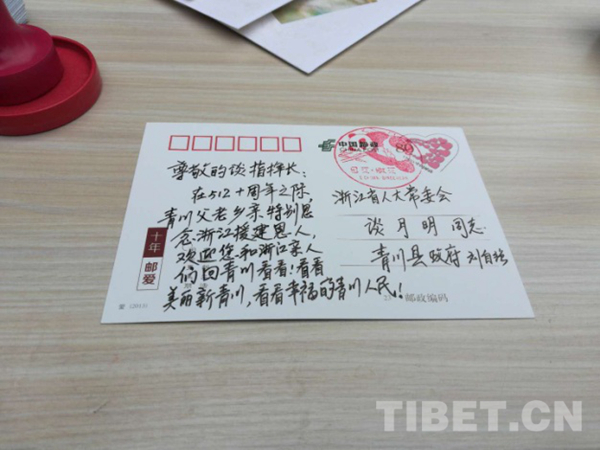 尊敬的谈指挥长:
在512十周年之际,
青川父老乡亲特别思
念浙江援建恩人,
欢迎您和浙江亲人
们回青川看看!看看
美丽新青川,看看幸福的青川人民!
中国邮政
80
浙江省人大常委会
谈月明 同志
青川县政府 刘自强
十年
邮爱
邮政编码
TIBET.CN